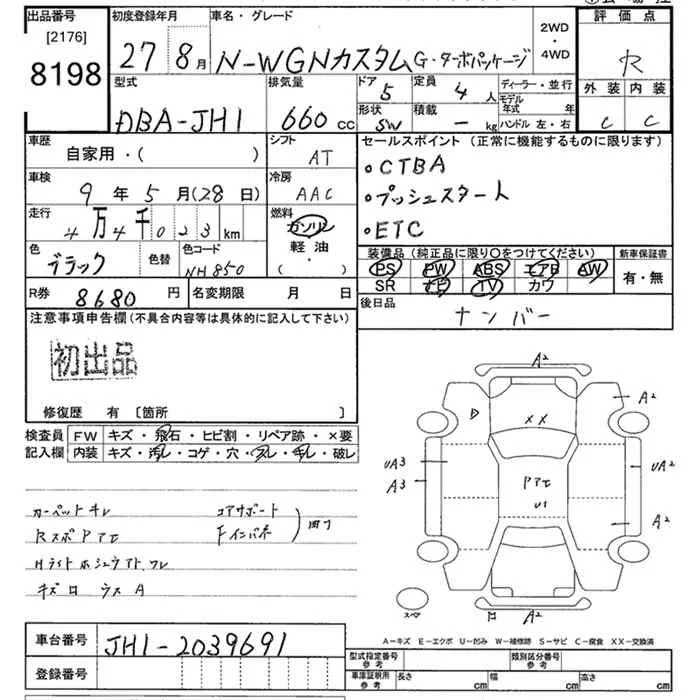 出品番号
[2176]
8198
初度登録年月
27年8月
車名・グレード
N-WGNカスタム G・ターボパッケージ
2WD
・
4WD
評価点
R
外装 内装
C C
型式
DBA-JH1
排気量
660cc
ドア
5
定員
4人
形状
SW
積載
ー kg
ディーラー・並行
モデル年式 年
ハンドル 左・右
車歴
自家用・( )
シフト
AT
車検
9年5月(28日)
冷房
AAC
走行
4万4千023km
燃料
ガソリン
軽油
・( )
色
ブラック
色替
色コード
NH850
R券
8680円
名変期限 月 日
セールスポイント(正常に機能するものに限ります)
・CTBA
・プッシュスタート
・ETC
装備品(純正品に限り○をつけてください)
PS PW ABS エアB AW
SR ナビ TV カワ
新車保証書
有・無
後日品
ナンバー
注意事項申告欄(不具合内容等は具体的に記入して下さい)
初出品
修復歴 有 [箇所 ]
検査員
記入欄
FW キズ・飛石・ヒビ割・リペア跡・×要
内装 キズ・汚レ・コゲ・穴・スレ・キレ・破レ
カーペットキレ
コアサポート
RスポPアエ
Fインパネ
Hライトホシュウアトワレ
キズロ ウスA
A2
××
A2
UA3
A3
Pアエ
U1
UA2
A2
スペア
A2
A-キズ E-エクボ U-凹み W-補修跡 S-サビ C-腐食 XX-交換済
車台番号
JH1-2039691
登録番号
型式指定番号
参考
類別区分番号
参考
車庫証明用
参考
長さ cm
幅 cm
高さ cm